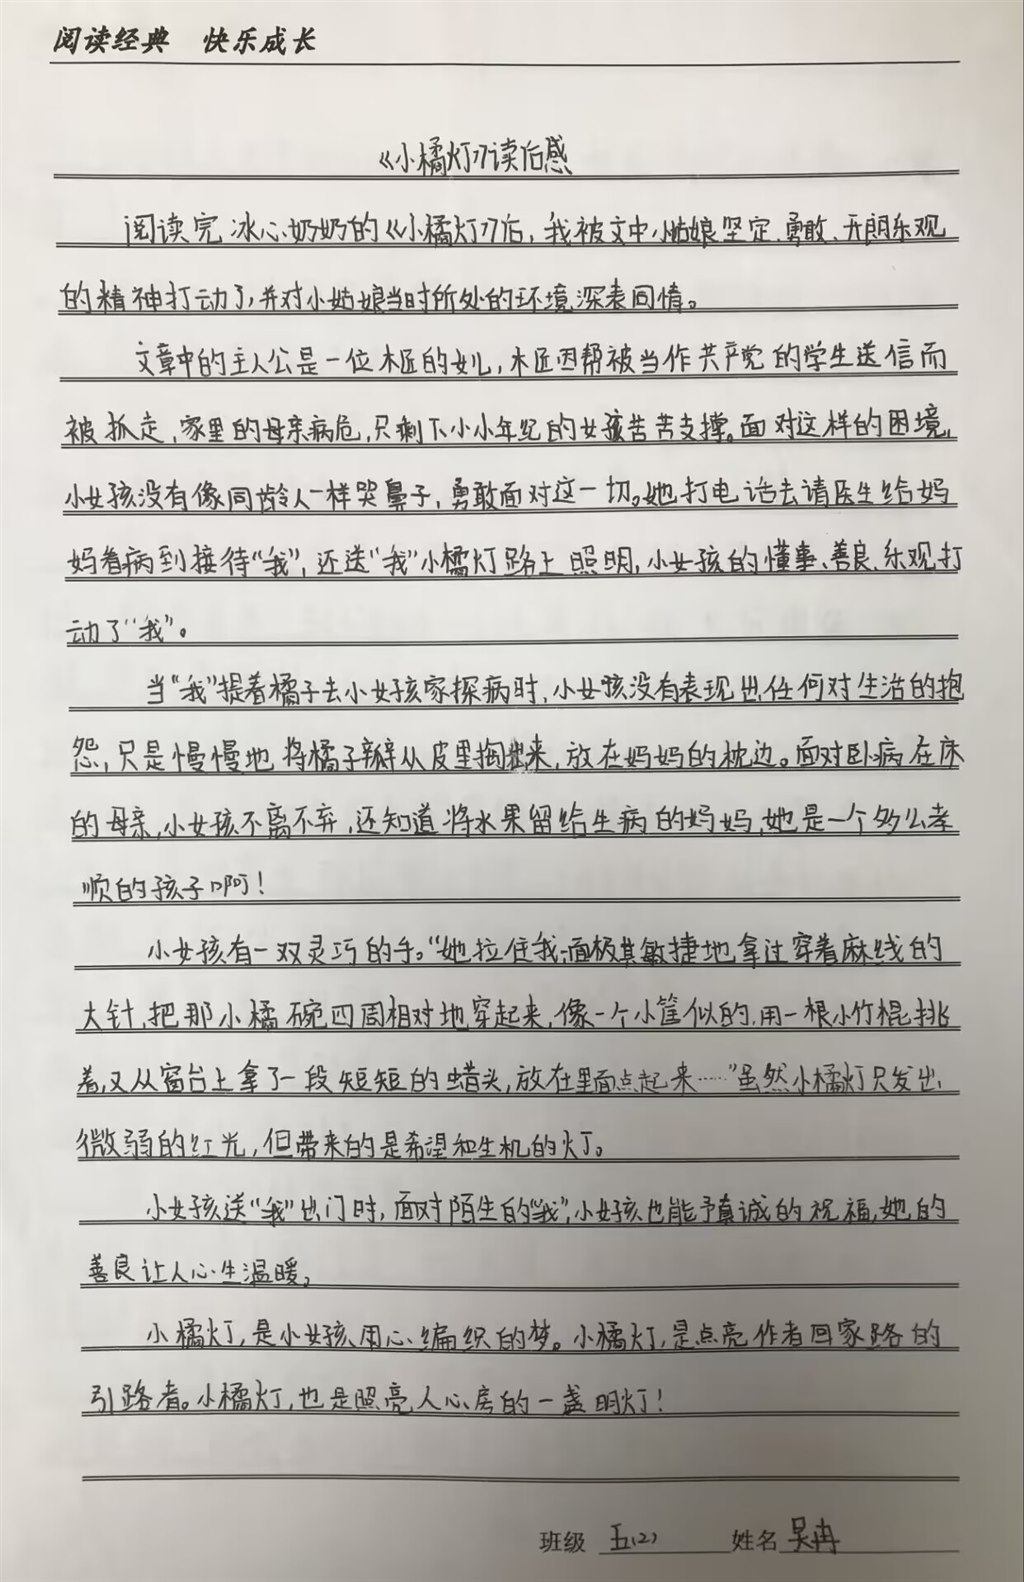 阅读经典　快乐成长
《小橘灯》读后感
阅读完冰心奶奶的《小橘灯》后，我被文中小姑娘坚定、勇敢、开朗乐观
的精神打动了，并对小姑娘当时所处的环境深表同情。
文章中的主人公是一位木匠的女儿，木匠因帮被当作共产党的学生送信而
被抓走，家里的母亲病危，只剩下小小年纪的女孩苦苦支撑。面对这样的困境，
小女孩没有像同龄人一样哭鼻子，勇敢面对这一切。她打电话去请医生给妈
妈看病到接待“我”，还送“我”小橘灯路上照明，小女孩的懂事、善良、乐观打
动了“我”。
当“我”提着橘子去小女孩家探病时，小女孩没有表现出任何对生活的抱
怨，只是慢慢地将橘子瓣从皮里掏出来，放在妈妈的枕边。面对卧病在床
的母亲，小女孩不离不弃，还知道将水果留给生病的妈妈，她是一个多么孝
顺的孩子啊！
小女孩有一双灵巧的手。“她拉住我，一面极其敏捷地拿过穿着麻线的
大针，把那小橘碗四周相对地穿起来，像一个小筐似的，用一根小竹棍挑
着，又从窗台上拿了一段短短的蜡头，放在里面点起来……”虽然小橘灯只发出
微弱的红光，但带来的是希望和生机的灯。
小女孩送“我”出门时，面对陌生的“我”，小女孩也能予真诚的祝福，她的
善良让人心生温暖。
小橘灯，是小女孩用心编织的梦。小橘灯，是点亮作者回家路的
引路者。小橘灯，也是照亮人心房的一盏明灯！
班级 五(2) 姓名 吴冉